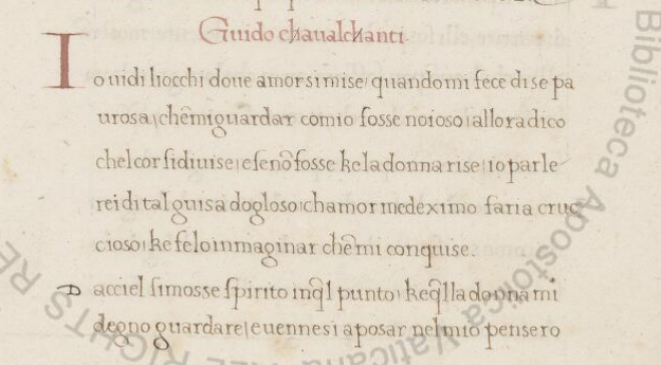 Guido chaualchanti.
Io uidi liocchi doue amor simise quando mi fece dise pa
urosa chēmiguardar comio fosse noioso allora dico
chel cor sidiuise esenōfosse ke la donna rise io parle
rei di tal guisa dogloso chamor medeximo faria cruc
cioso ke felo inmaginar chēmi conquise.
Dacciel simosse spirito inq̄l punto keq̄lla donna mi
degno guardare euennesi aposar nel mio pensero
Biblioteca Apostolica Vaticana